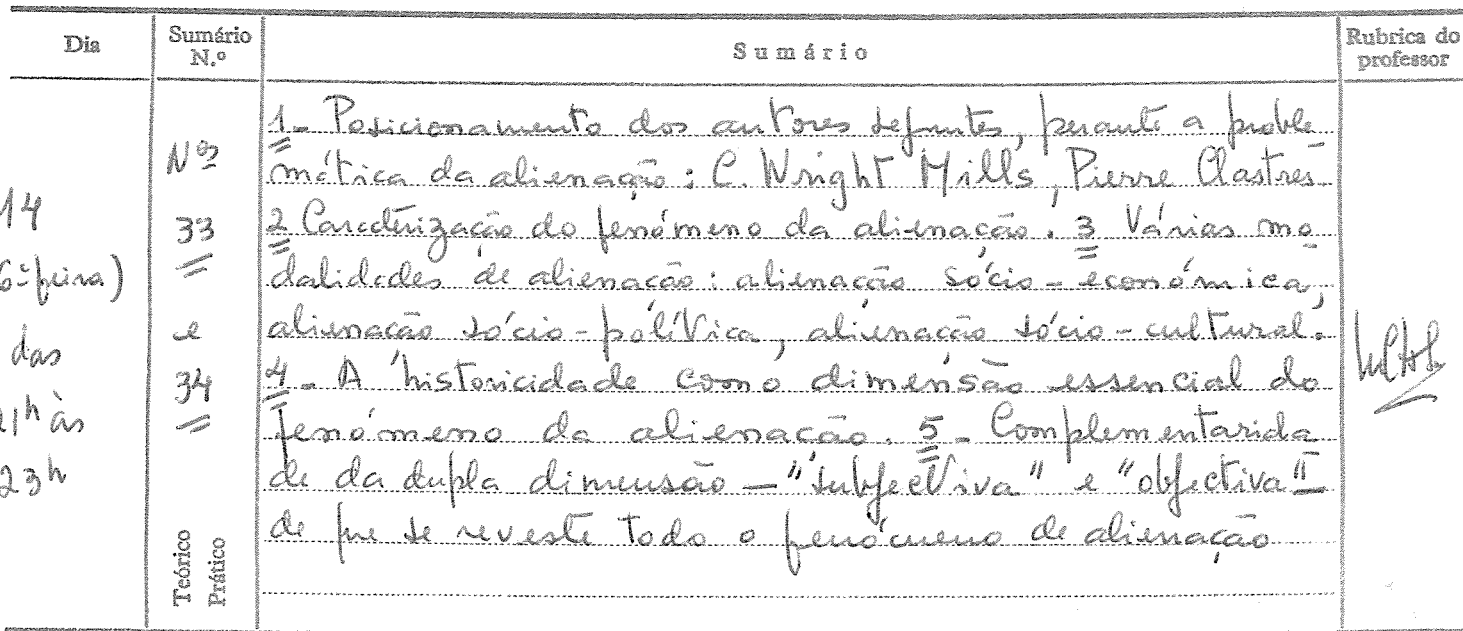 Dia
Sumário N.º
Sumário
Rubrica do professor
14
6ª feira)
das
21h às
23h
Nºs
33
e
34
Teórico
Prático
1 - Posicionamento dos autores seguintes, perante a proble
mática da alienação: C. Wright Mills, Pierre Clastres
2 Caracterização do fenómeno da alienação. 3 Várias mo
dalidades de alienação: alienação sócio-económica,
alienação sócio-política, alienação sócio-cultural.
4 - A historicidade como dimensão essencial do
fenómeno da alienação. 5 - Complementarida
de da dupla dimensão — "subjectiva" e "objectiva" —
de que se reveste todo o fenómeno de alienação